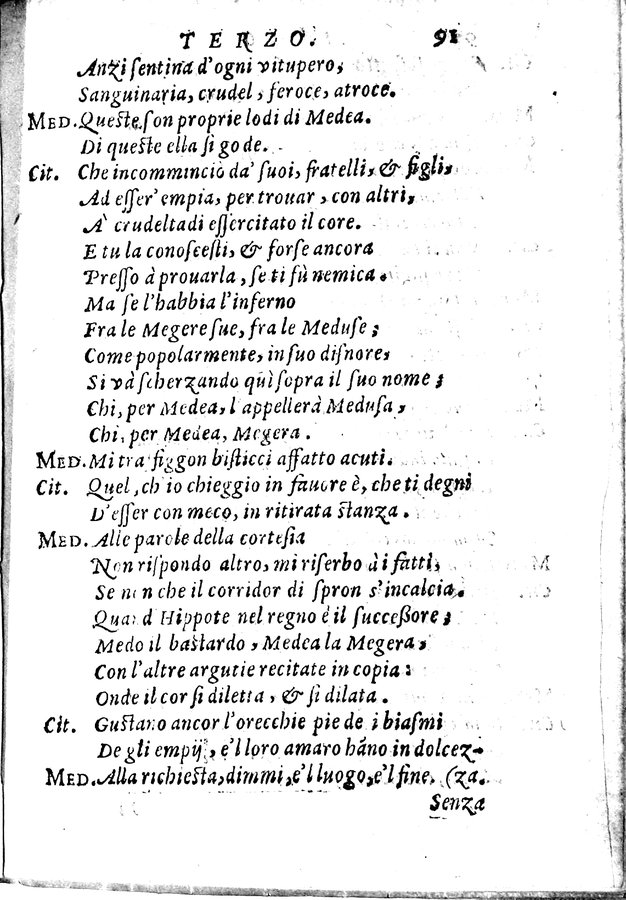 TERZO. 91
Anzi sentina d'ogni vitupero,
Sanguinaria, crudel, feroce, atroce.
MED. Queste son proprie lodi di Medea.
Di queste ella si gode.
Cit. Che incomminciò da' suoi, fratelli, & figli,
Ad esser' empia, per trouar, con altri,
A' crudeltadi essercitato il core.
E tu la conoscesti, & forse ancora
Presso à prouarla, se ti fù nemica.
Ma se l'habbia l'inferno
Fra le Megere sue, fra le Meduse;
Come popolarmente, in suo disnore,
Si và scherzando quì sopra il suo nome;
Chi, per Medea, l'appellerà Medusa,
Chi, per Medea, Megera.
MED. Mi trafiggon bisticci affatto acuti.
Cit. Quel, ch'io chieggio in fauore è, che ti degni
D'esser con meco, in ritirata stanza.
MED. Alle parole della cortesia
Non rispondo altro, mi riserbo à i fatti,
Se non che il corridor di spron s'incalcia.
Quand Hippote nel regno è il successore;
Medo il bastardo, Medea la Megera,
Con l'altre argutie recitate in copia:
Onde il cor si diletta, & si dilata.
Cit. Gustano ancor l'orecchie pie de i biasmi
De gli empij, e'l loro amaro hāno in dolcez-
MED. Alla richiesta, dimmi, e'l luogo, e'l fine. (za.
Senza